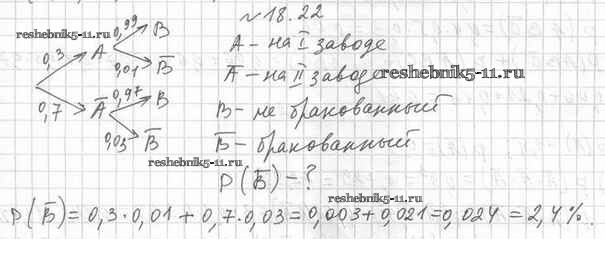 №18.22
0,3 A 0,99 B
0,01 B̅
0,7 A̅ 0,97 B
0,03 B̅
A – на I заводе
A̅ – на II заводе
B – не бракованный
B̅ – бракованный
P(B̅) – ?
P(B̅) = 0,3·0,01 + 0,7·0,03 = 0,003 + 0,021 = 0,024 = 2,4%.
reshebnik5-11.ru
reshebnik5-11.ru
reshebnik5-11.ru
reshebnik5-11.ru